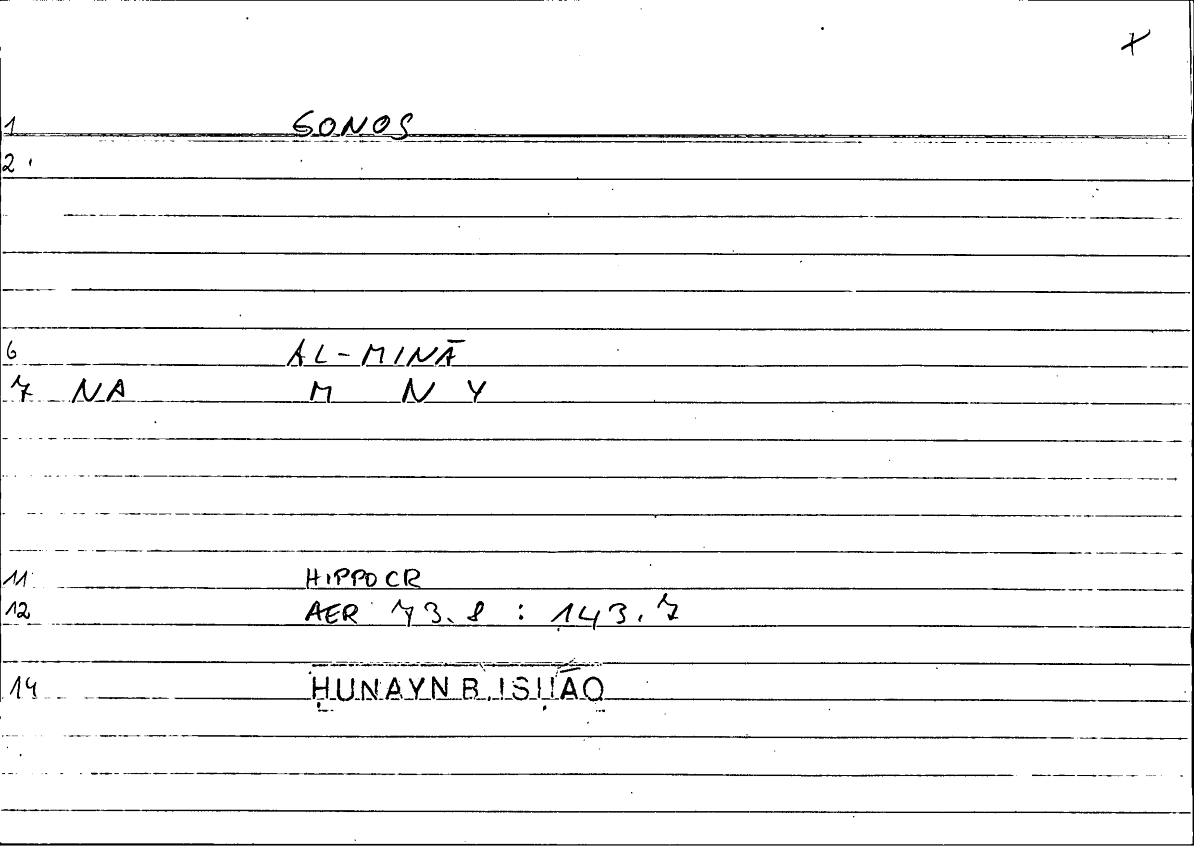 x
1 GONOS
2
6 AL-MINĀ
7 NA M N Y
11 HIPPOCR
12 AER 73.8 : 143.7
14 ḤUNAYN B. ISḤĀQ